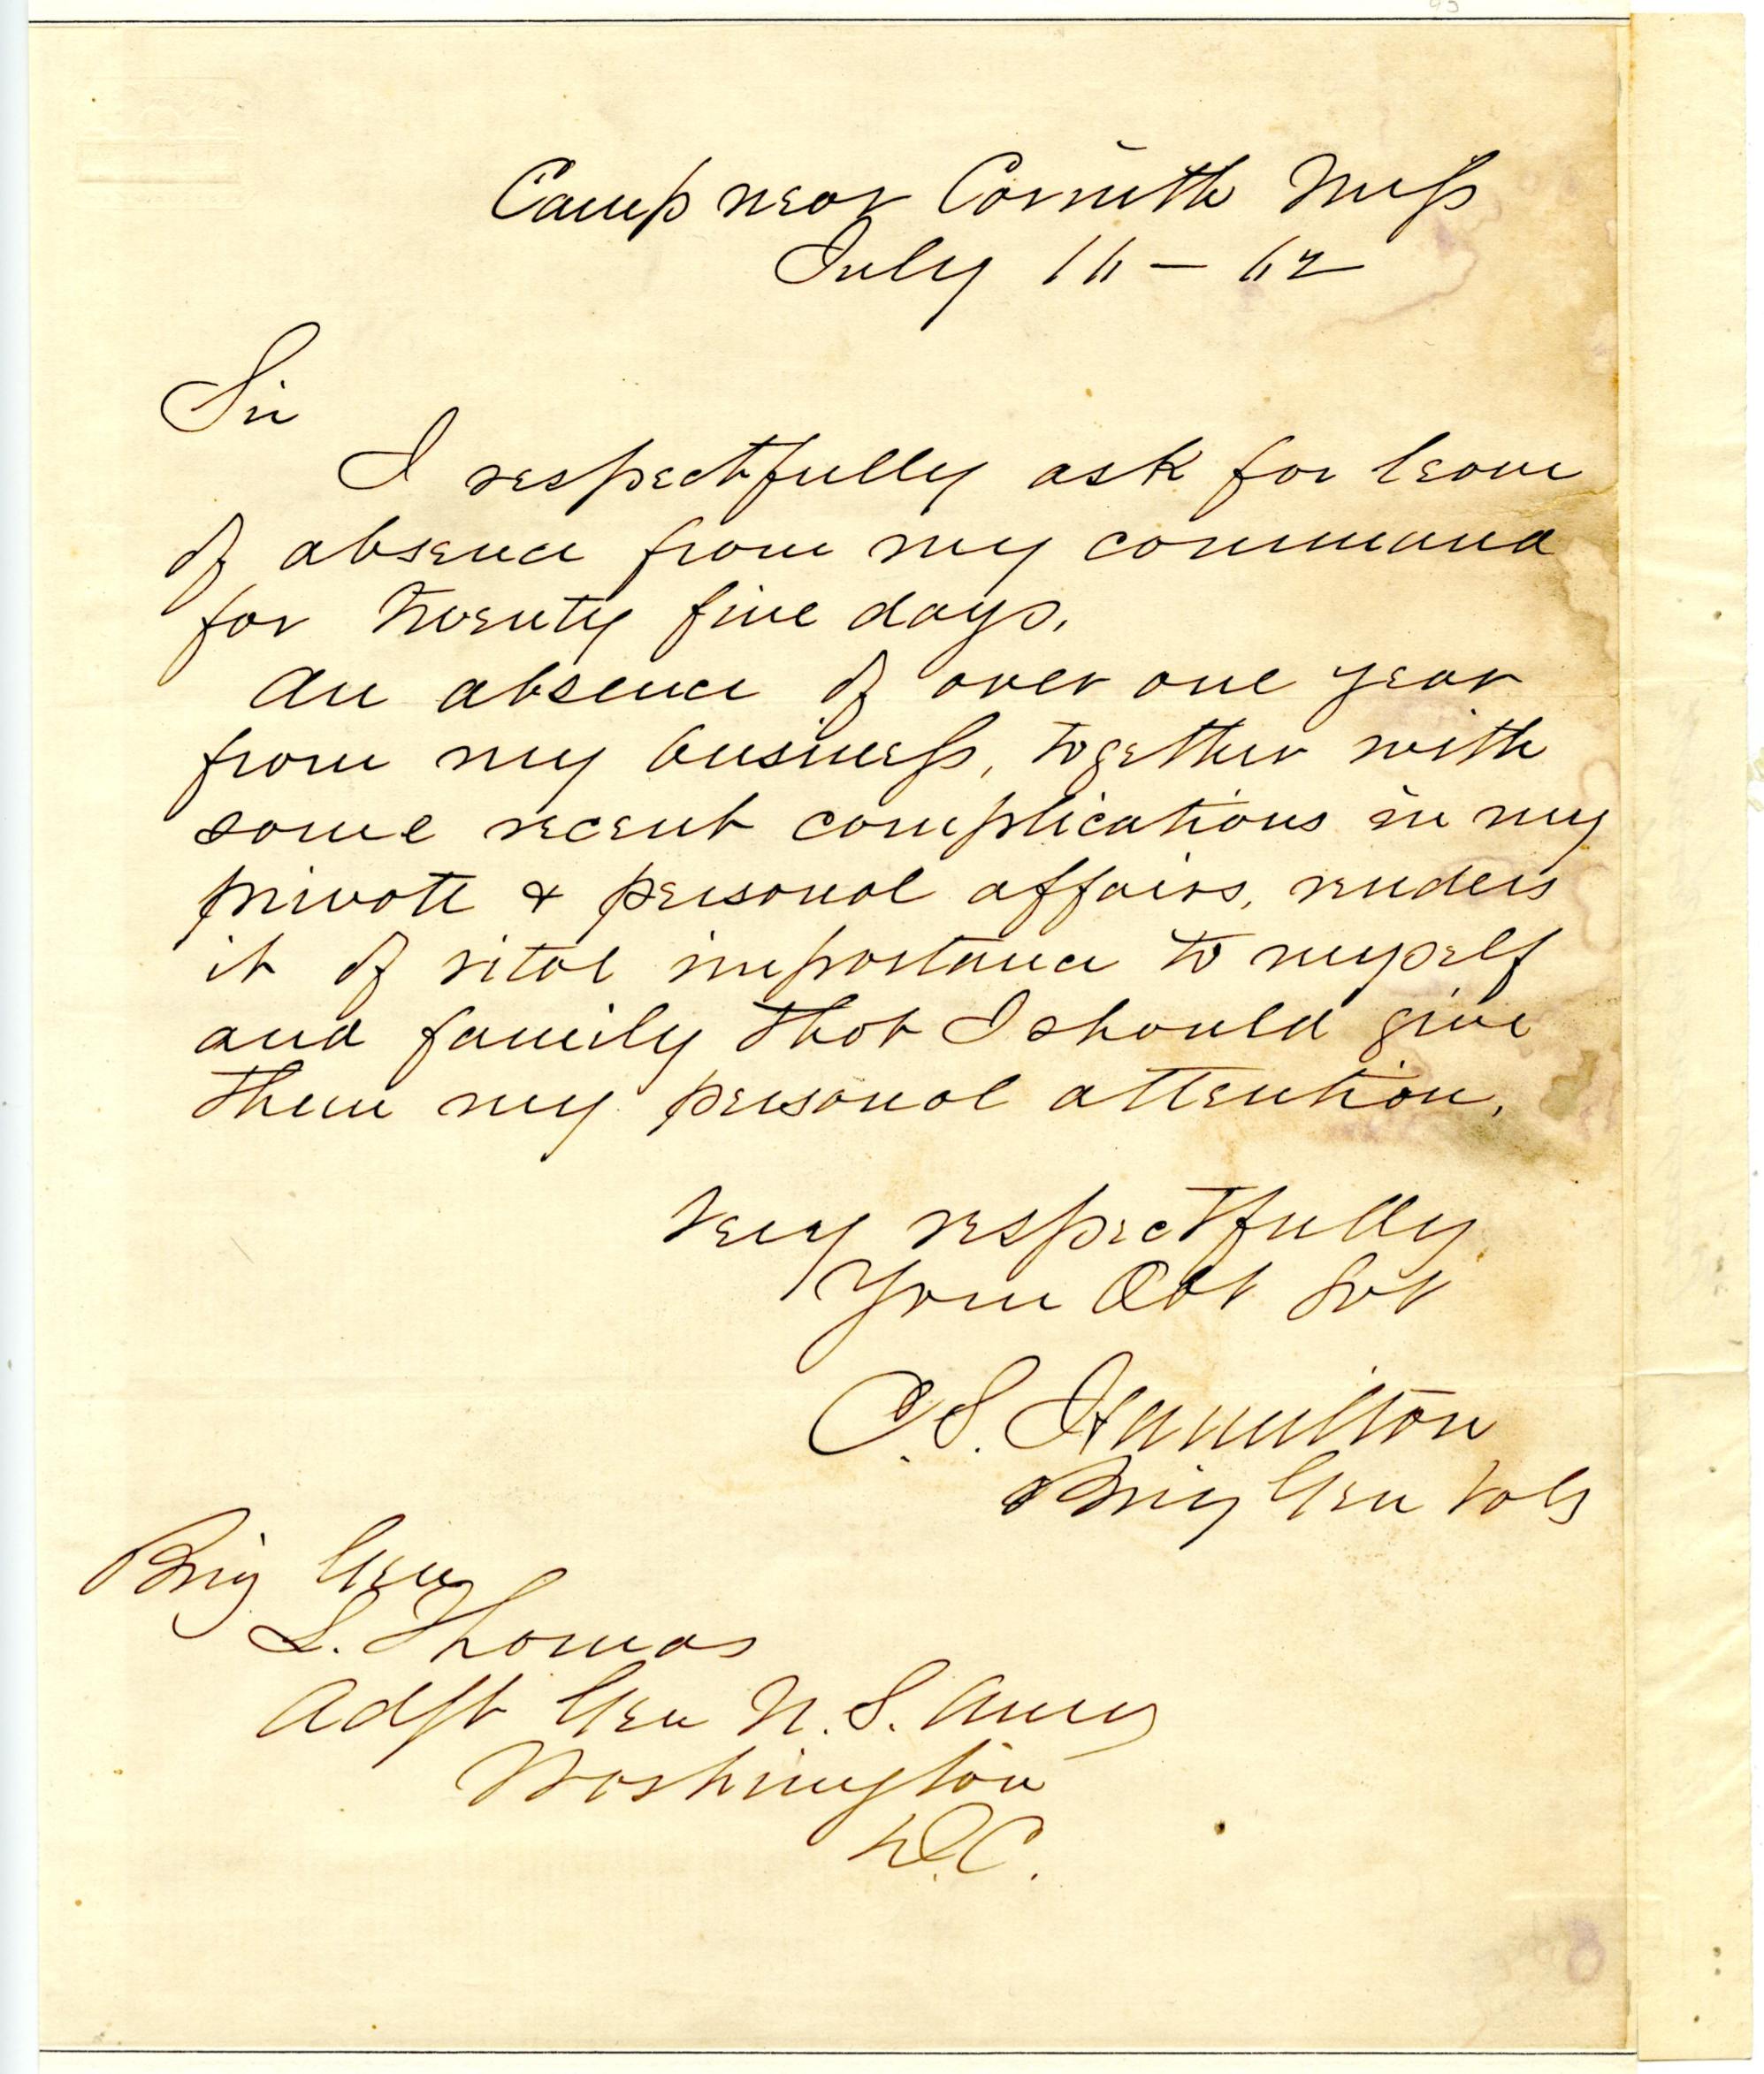 Camp near Corinth Miss
July 16 – 62
Sir
I respectfully ask for leave
of absence from my command
for Twenty five days.
An absence of over one year
from my business, together with
some recent complications in my
private & personal affairs, renders
it of vital importance to myself
and family that I should give
them my personal attention.
Very respectfully
Your Obt Svt
C. S. Hamilton
Brig Gen Vols
Brig Gen
L. Thomas
Adjt Gen U. S. Army
Washington
D.C.